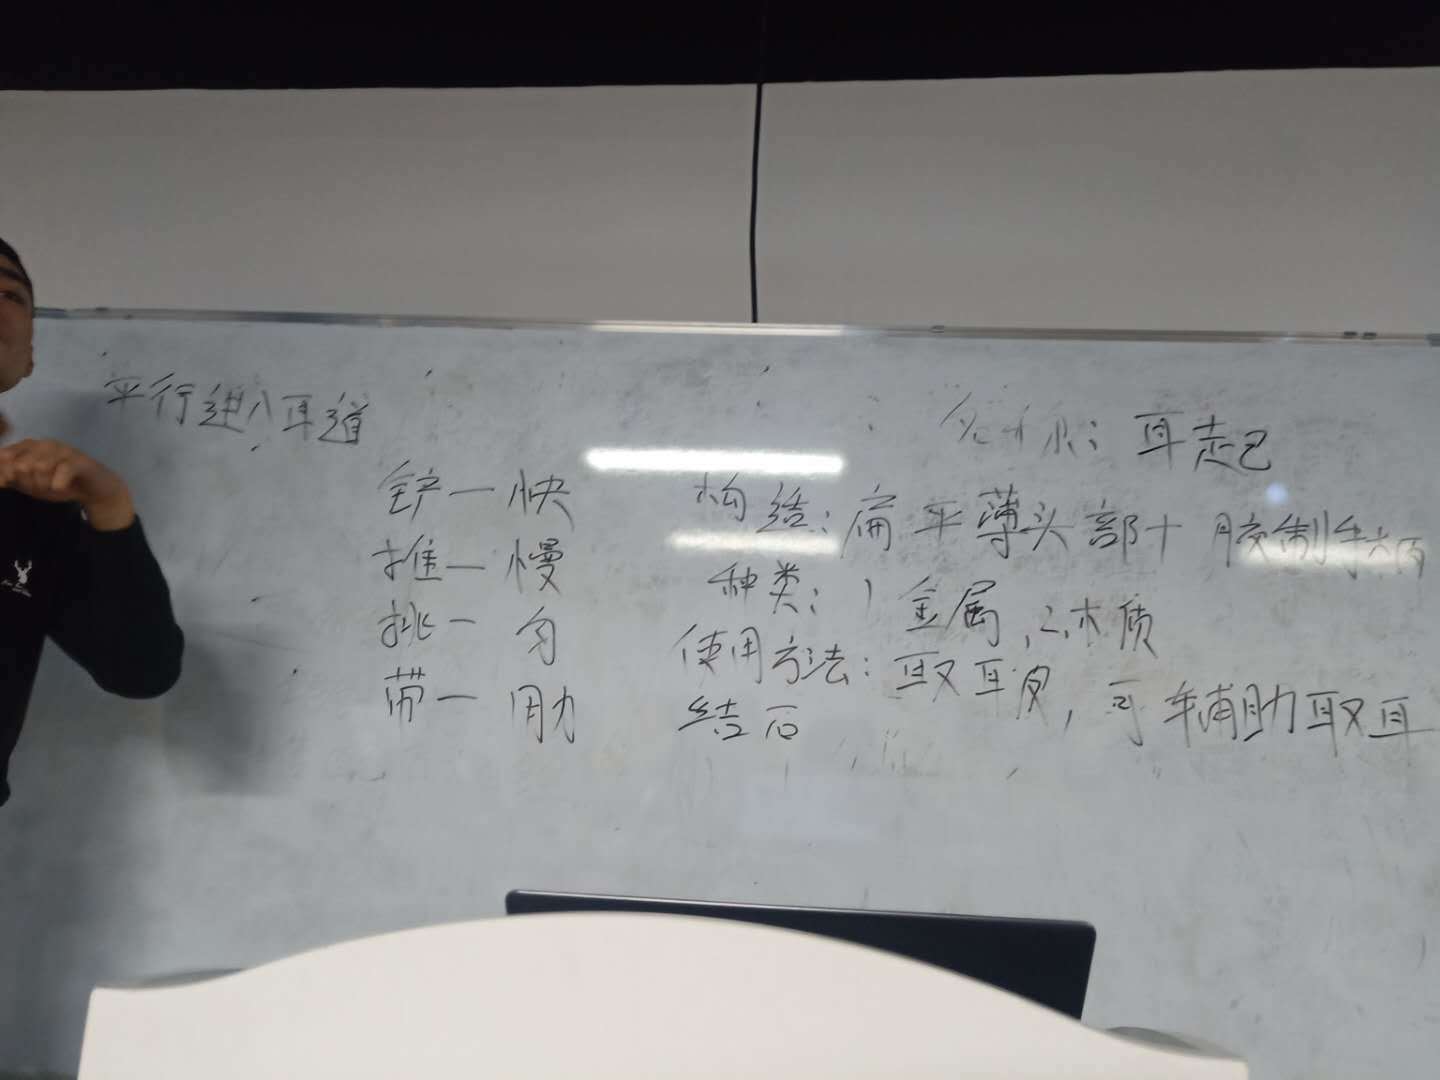 平行进入耳道
铲一快
推一慢
挑一匀
带一助
名称：耳起
构结：扁平薄头部+胶制手柄
种类：1金属，2木质
使用方法：取耳皮，可辅助取耳
结石